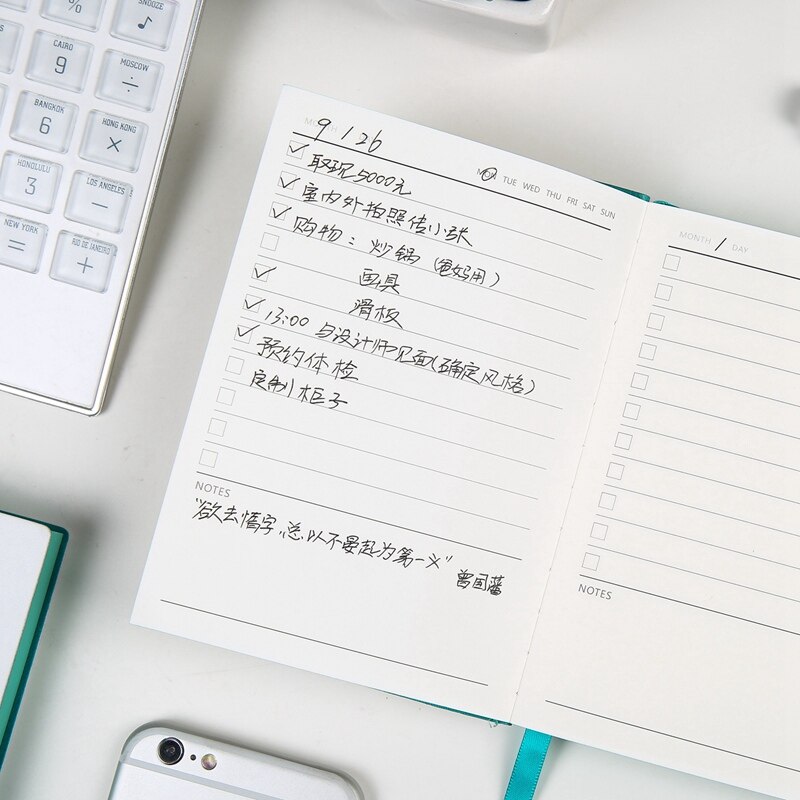 %
SNOOZE
♪
CAIRO
9
MOSCOW
÷
BANGKOK
6
HONG KONG
×
HONOLULU
3
LOS ANGELES
−
NEW YORK
=
RIO DE JANEIRO
+
9 / 26
MON TUE WED THU FRI SAT SUN
取现5000元
室内外拍照传小
购物：炒锅（爸妈用）
画具
滑板
13:00 与设计师见面(确定风格)
预约体检
定制柜子
NOTES
"欲去惰字，总以不晏起为第一义"
曾国藩
MONTH / DAY
NOTES